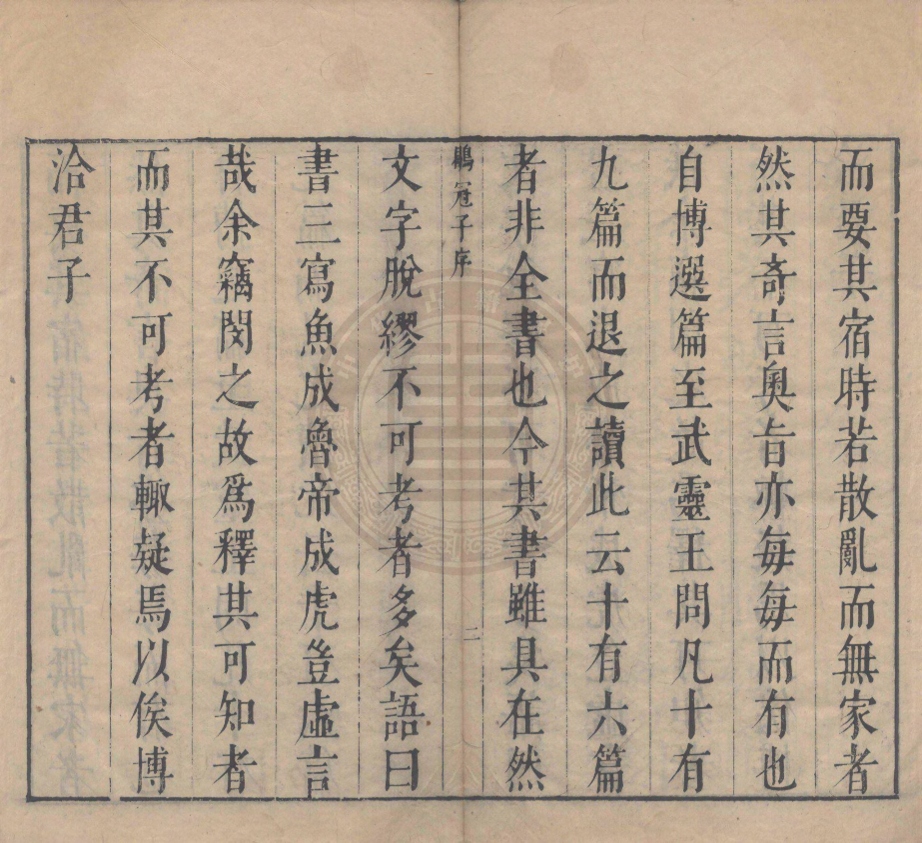 而要其宿時若散亂而無家者
然其奇言奥旨亦每每而有也
自博選篇至武靈王問凡十有
九篇而退之讀此云十有六篇
者非全書也今其書雖具在然
鶡冠子序
二
文字脫繆不可考者多矣語曰
書三寫魚成魯帝成虎豈虛言
哉余竊閔之故爲釋其可知者
而其不可考者輙疑焉以俟博
洽君子